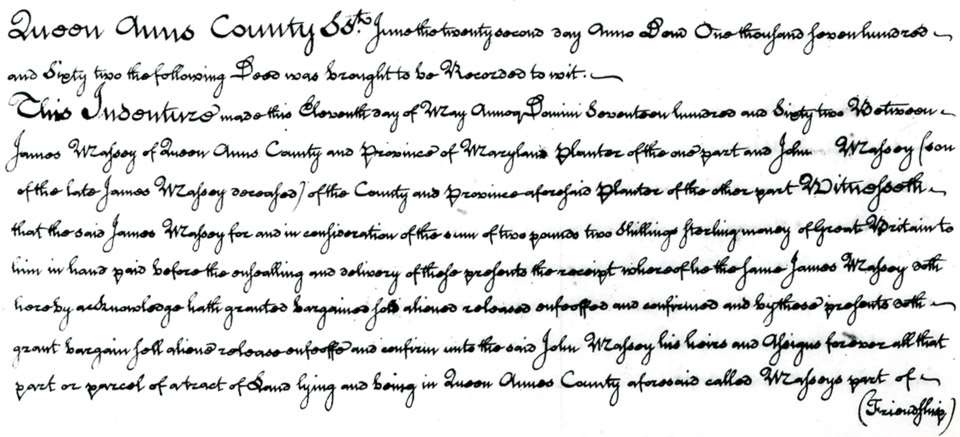 Queen Anns County Sst. June the twenty second day Anno Domi One thousand seven hundred
and Sixty two the following Deed was brought to be Recorded to wit.
This Indenture made this Eleventh day of May Annoq Domini Seventeen hundred and Sixty two Between
James Massey of Queen Anns County and Province of Maryland Planter of the one part and John Massey (son
of the late James Massey deceased) of the County and Province aforesaid Planter of the other part Witnesseth
that the said James Massey for and in consideration of the sum of two pounds two Shillings sterling money of Great Britain to
him in hand paid before the ensealling and delivery of these presents the receipt whereof he the same James Massey doth
hereby acknowledge hath granted bargained sold aliened released enfeoffed and confirmed and by these presents doth
grant bargain sell aliene release enfeoffe and confirm unto the said John Massey his heirs and Assigns forever all that
part or parcel of a tract of Land lying and being in Queen Annes County aforesaid called Masseys part of
(Friendship)